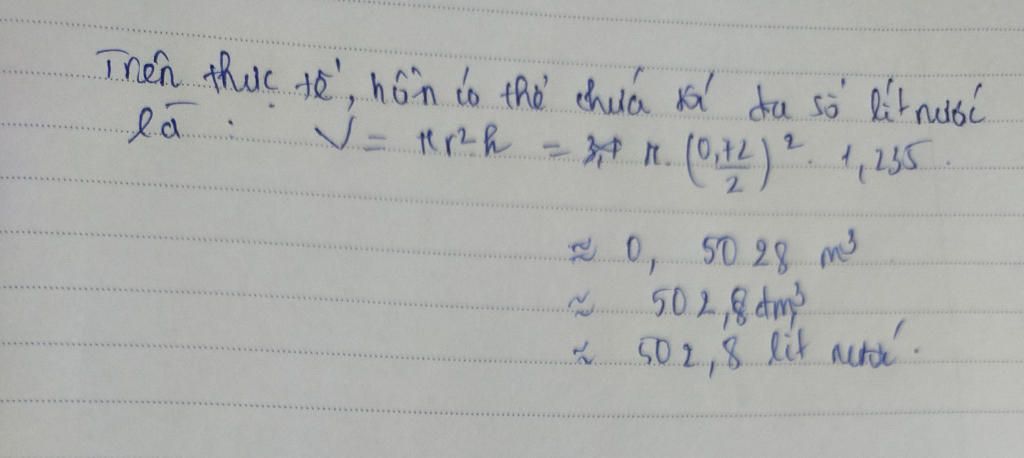 Trên thực tế, bồn có thể chứa tối đa số lít nước
là : V = πr²h = π. (0,72/2)². 1,235.
≈ 0, 5028 m³
≈ 502,8 dm³
≈ 502,8 lít nước.